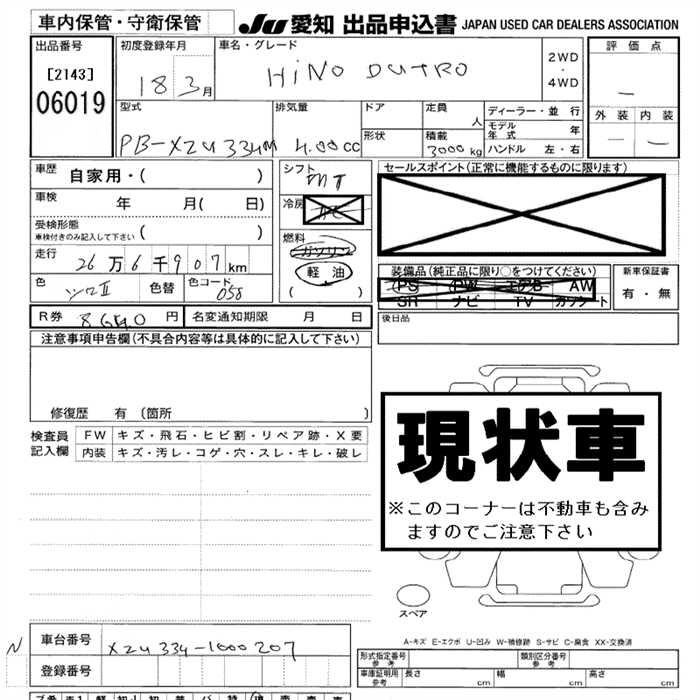 車内保管・守衛保管 JU 愛知 出品申込書 JAPAN USED CAR DEALERS ASSOCIATION
出品番号 初度登録年月 車名・グレード 評価点
[2143] 18 3月 HINO DUTRO 2WD・4WD —
06019
型式 排気量 ドア 定員 人 ディーラー・並行 外装 内装
PB-XZU334M 4.00cc 形状 積載 3000kg モデル年式 年 — —
ハンドル 左・右
車歴 自家用・( ) シフト MT セールスポイント(正常に機能するものに限ります)
車検 年 月( 日) 冷房
受検形態 ( )
車検付きのみ記入して下さい
燃料 ガソリン
走行 26万6千907km 軽油 装備品(純正品に限り○をつけてください) 新車保証書
色 シロⅡ 色替 色コード 058 ( ) PS PW エアB AW 有・無
SR ナビ TV カセット
R券 円 名変通知期限 月 日 後日品
注意事項申告欄(不具合内容等は具体的に記入して下さい)
修復歴 有(箇所 )
現状車
※このコーナーは不動車も含み
ますのでご注意下さい
検査員 FW キズ・飛石・ヒビ割・リペア跡・X要
記入欄 内装 キズ・汚レ・コゲ・穴・スレ・キレ・破レ
スペア
A-キズ E-エクボ U-凹み W-補修跡 S-サビ C-腐食 XX-交換済
N 車台番号 XZU334-1000207
登録番号
形式指定番号 参考 類別区分番号 参考
車庫証明用 参考 長さ cm 幅 cm 高さ cm